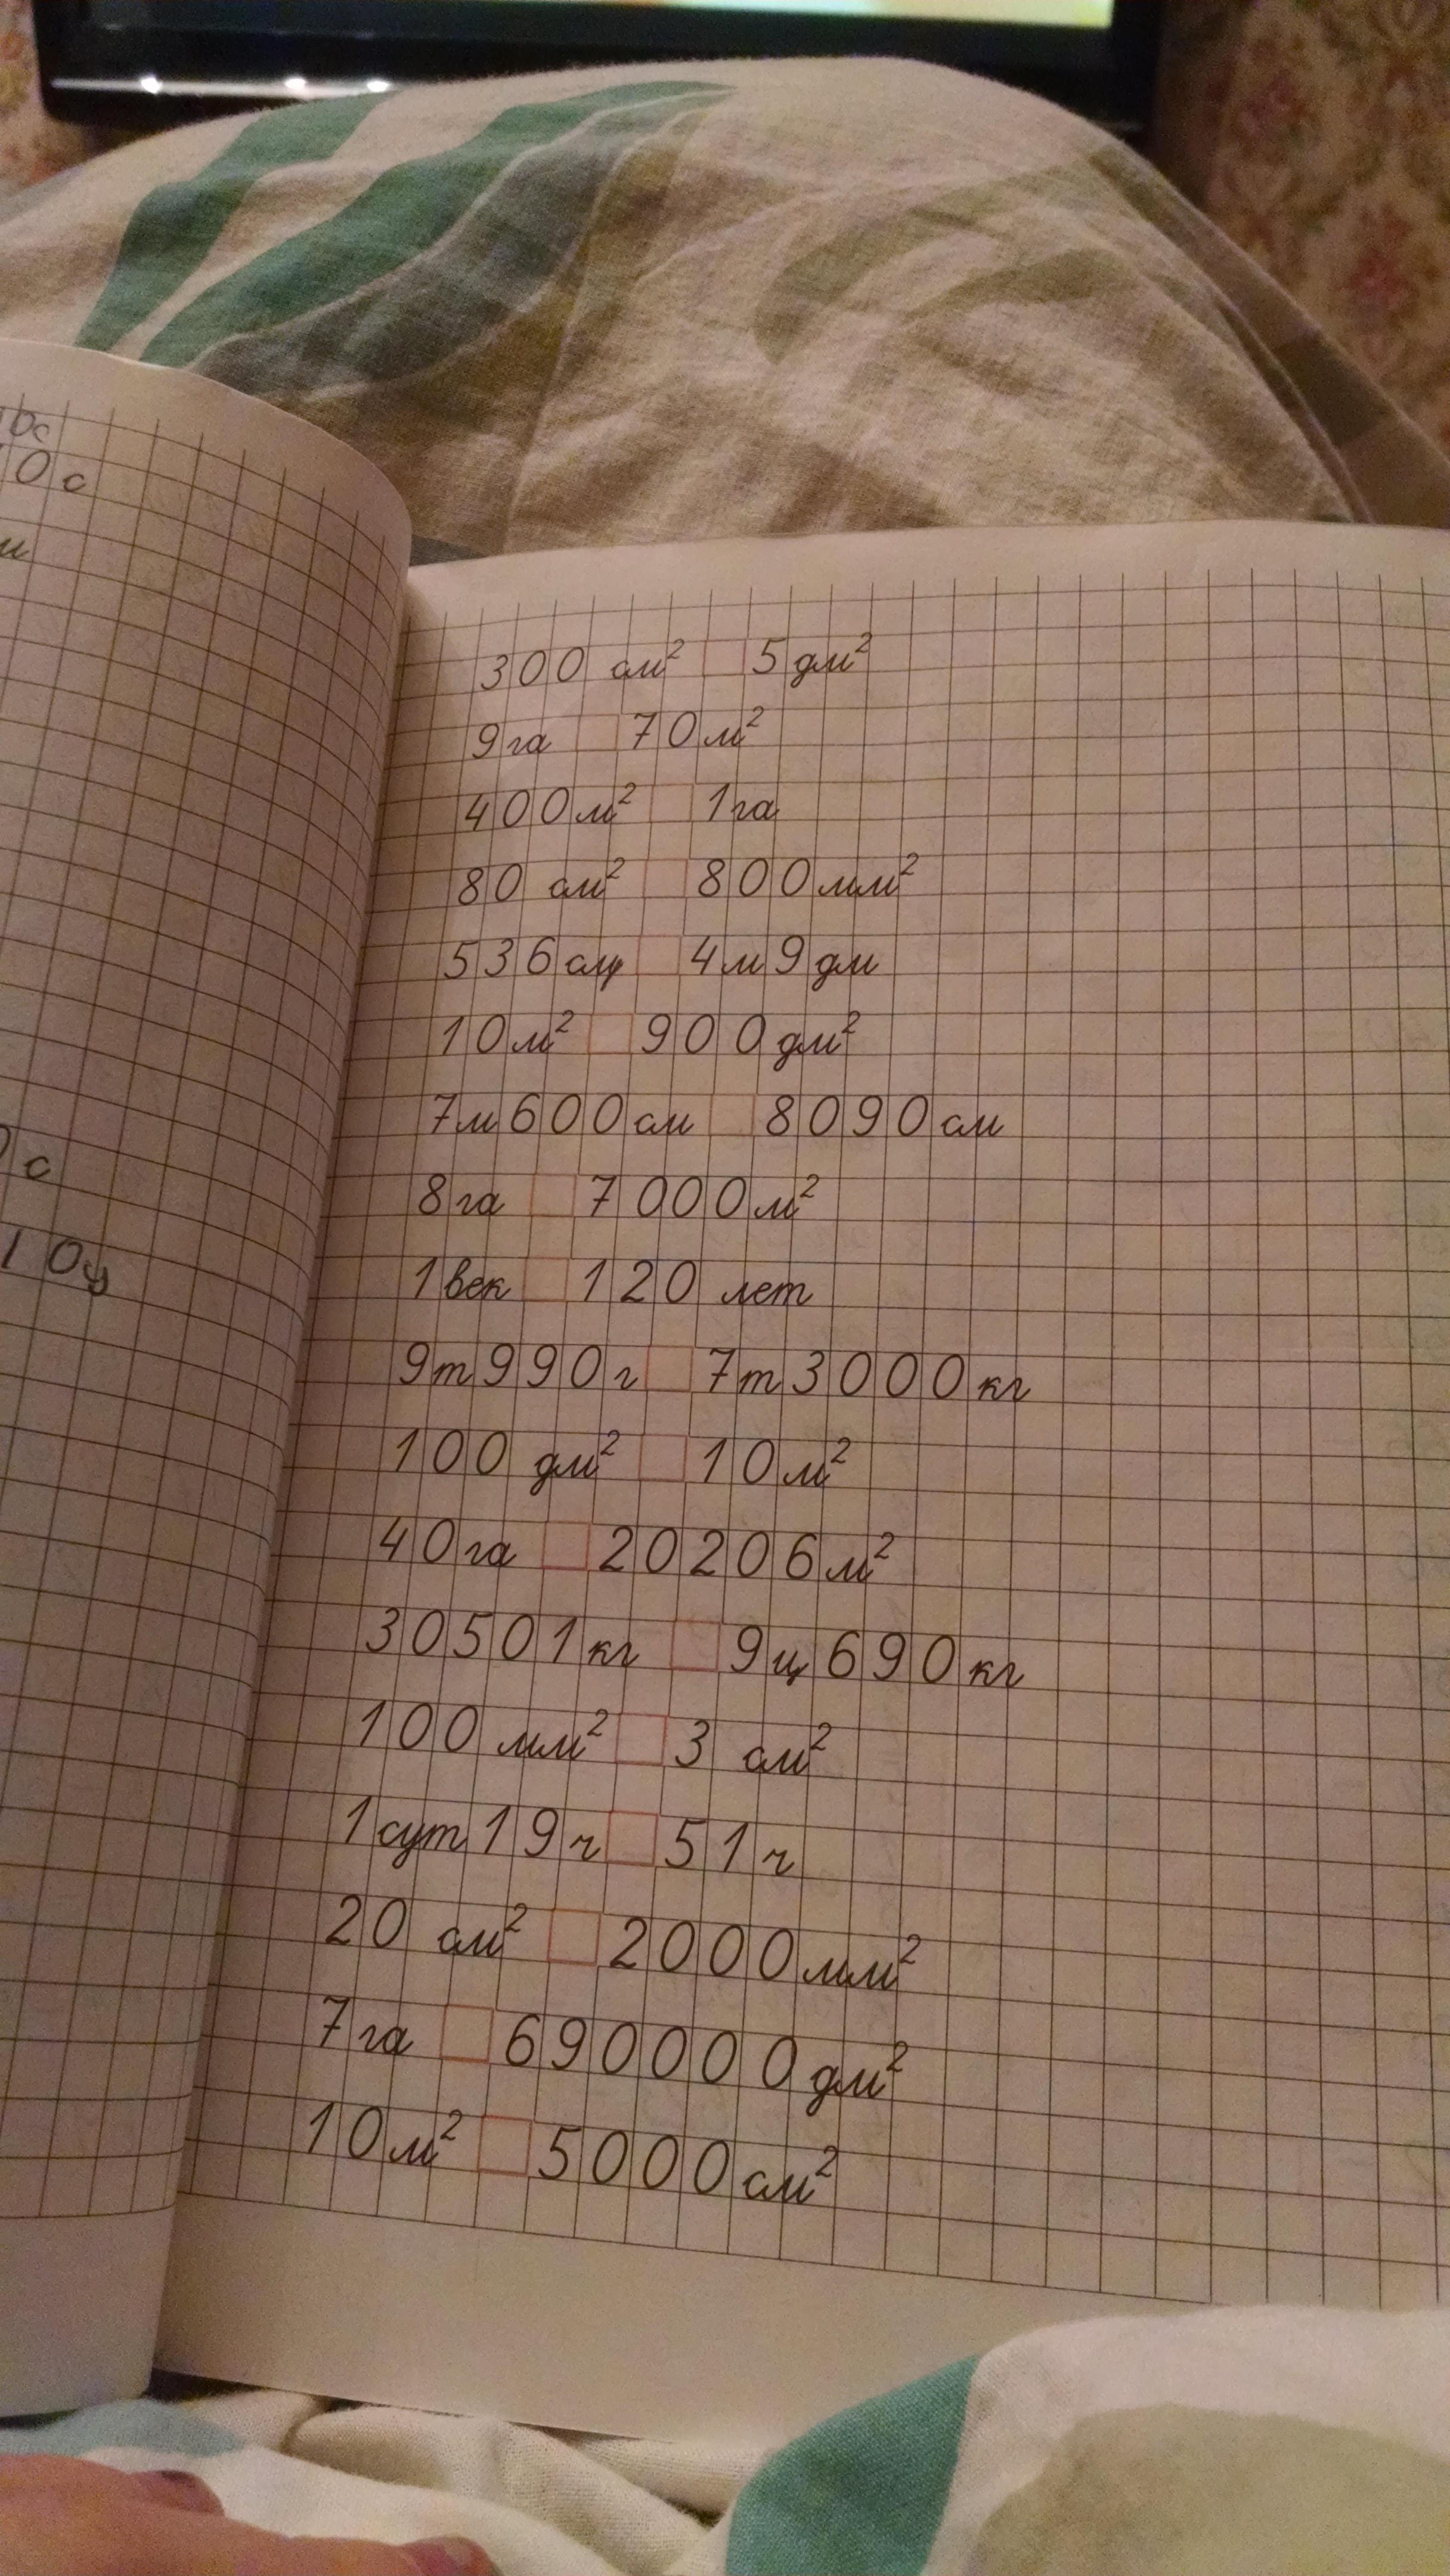 bc
0c
м
300 см² □ 5 дм²
9 га □ 70 м²
400 м² □ 1 га
80 см² □ 800 мм²
536 см □ 4 м 9 дм
10 м² □ 900 дм²
7 м 600 см □ 8090 см
0 с
8 га □ 7000 м²
10 ц
1 век □ 120 лет
9 т 990 г □ 7 т 3000 кг
100 дм² □ 10 м²
40 га □ 20206 м²
30501 кг □ 9 ц 690 кг
100 мм² □ 3 см²
1 сут 19 ч □ 51 ч
20 см² □ 2000 мм²
7 га □ 690000 дм²
10 м² □ 5000 см²